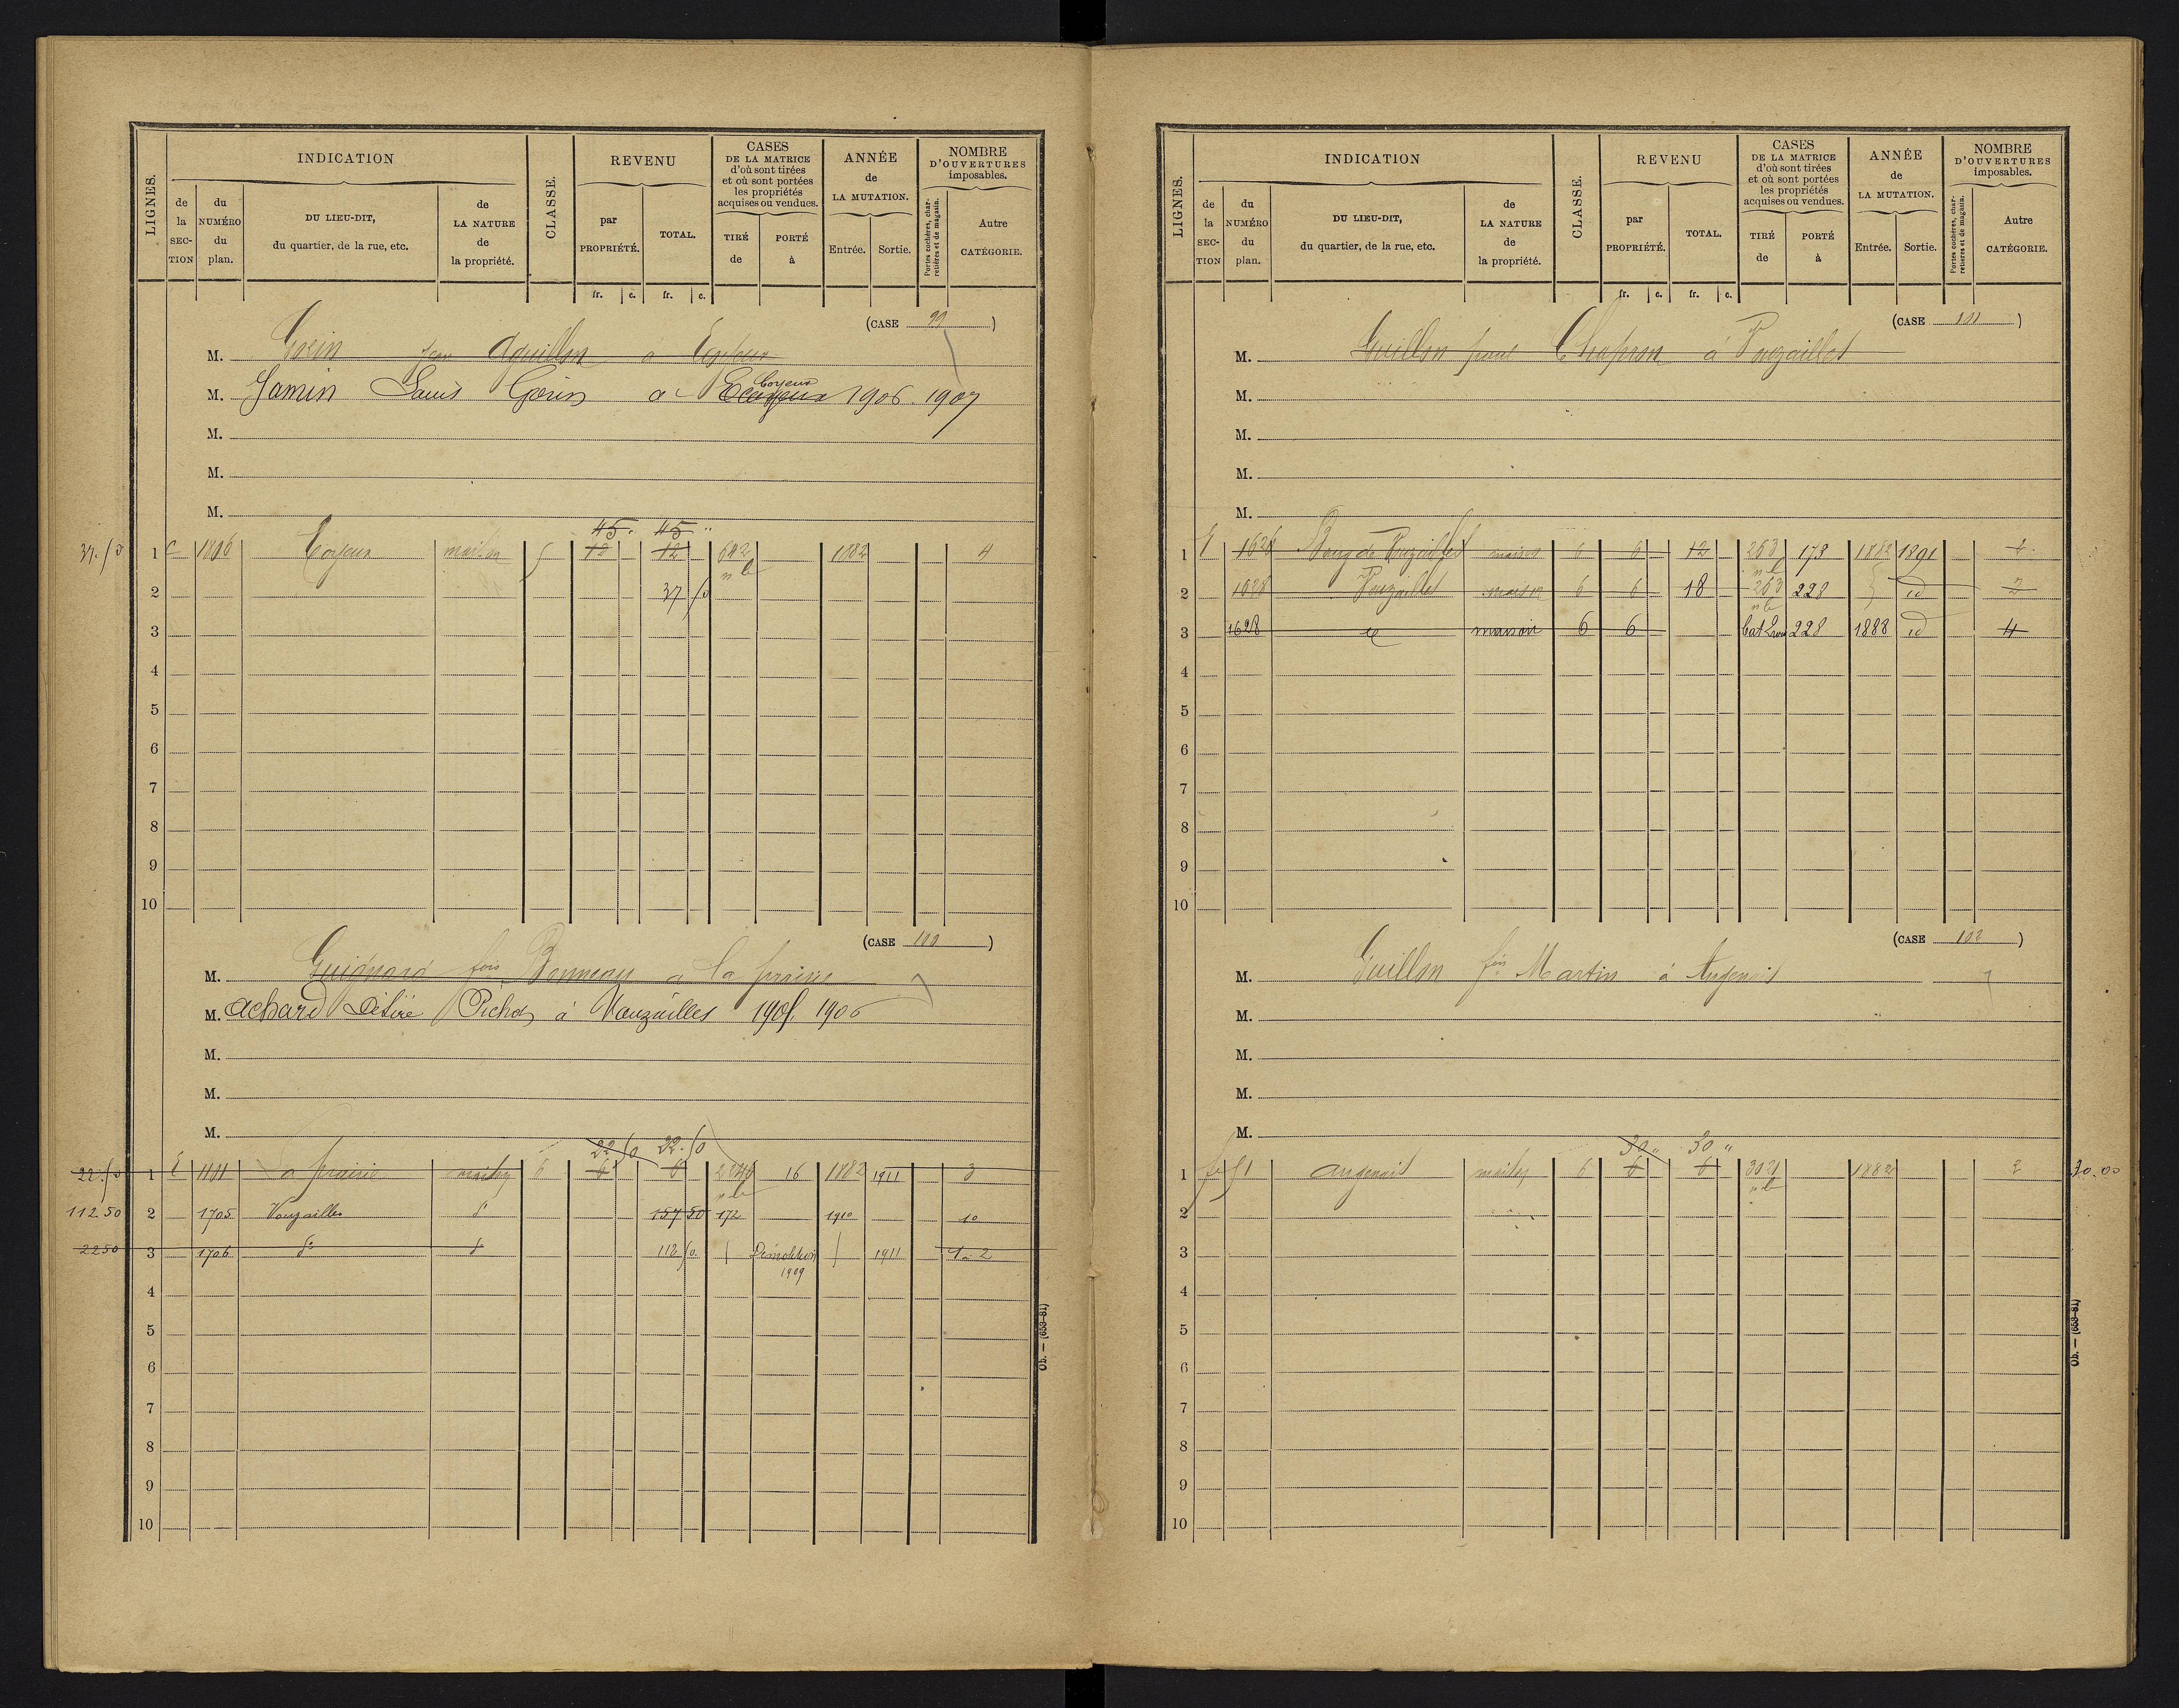 LIGNES.
INDICATION
de la SECTION
du NUMÉRO du plan.
DU LIEU-DIT, du quartier, de la rue, etc.
de LA NATURE de la propriété.
CLASSE.
REVENU
par PROPRIÉTÉ.
TOTAL.
fr. c. fr. c.
CASES DE LA MATRICE d'où sont tirées et où sont portées les propriétés acquises ou vendues.
TIRÉ de
PORTÉ à
ANNÉE de LA MUTATION.
Entrée. Sortie.
NOMBRE D'OUVERTURES imposables.
Portes cochères, charretières et de magasin.
Autre CATÉGORIE.
(CASE 99)
M. Gorin Jean à
M. Jamin Louis Gorin à Coyeux 1906. 1907
M.
M.
M.
45. 45 "
37.50 1 C 1806 maison 5 12 12 642 1882 4
n b
2 37 50
3
4
5
6
7
8
9
10
(CASE 100)
M. Guignard fois Bonneau à La prairie
M. Achard Désiré Pichot à Vouzailles 1905. 1906
M.
M.
M.
22 50 22.50
22.50 1 E 1101 La prairie maison 6 6 6 16 1882 1911 3
n b
112 50 2 1705 Vouzailles d° 157 50 172 1910 10
22 50 3 1706 d° d° 112 50 Démolition 1911 1 à 2
1909
4
5
6
7
8
9
10
Ob. — (653-81)
LIGNES.
INDICATION
de la SECTION
du NUMÉRO du plan.
DU LIEU-DIT, du quartier, de la rue, etc.
de LA NATURE de la propriété.
CLASSE.
REVENU
par PROPRIÉTÉ.
TOTAL.
fr. c. fr. c.
CASES DE LA MATRICE d'où sont tirées et où sont portées les propriétés acquises ou vendues.
TIRÉ de
PORTÉ à
ANNÉE de LA MUTATION.
Entrée. Sortie.
NOMBRE D'OUVERTURES imposables.
Portes cochères, charretières et de magasin.
Autre CATÉGORIE.
(CASE 101)
M. Guillon Chapron à
M.
M.
M.
M.
1 E 1628 maison 6 6 12 263 178 1882 1891
n b
2 1628 maison 6 6 18 263 228 id 2
n b
3 1628 id maison 6 6 228 1888 id 4
4
5
6
7
8
9
10
(CASE 102)
M. Guillon fois Martin à
M.
M.
M.
M.
30 " 30 "
1 maison 6 6 6 302 1882 2 30.00
n b
2
3
4
5
6
7
8
9
10
Ob. — (653-81)